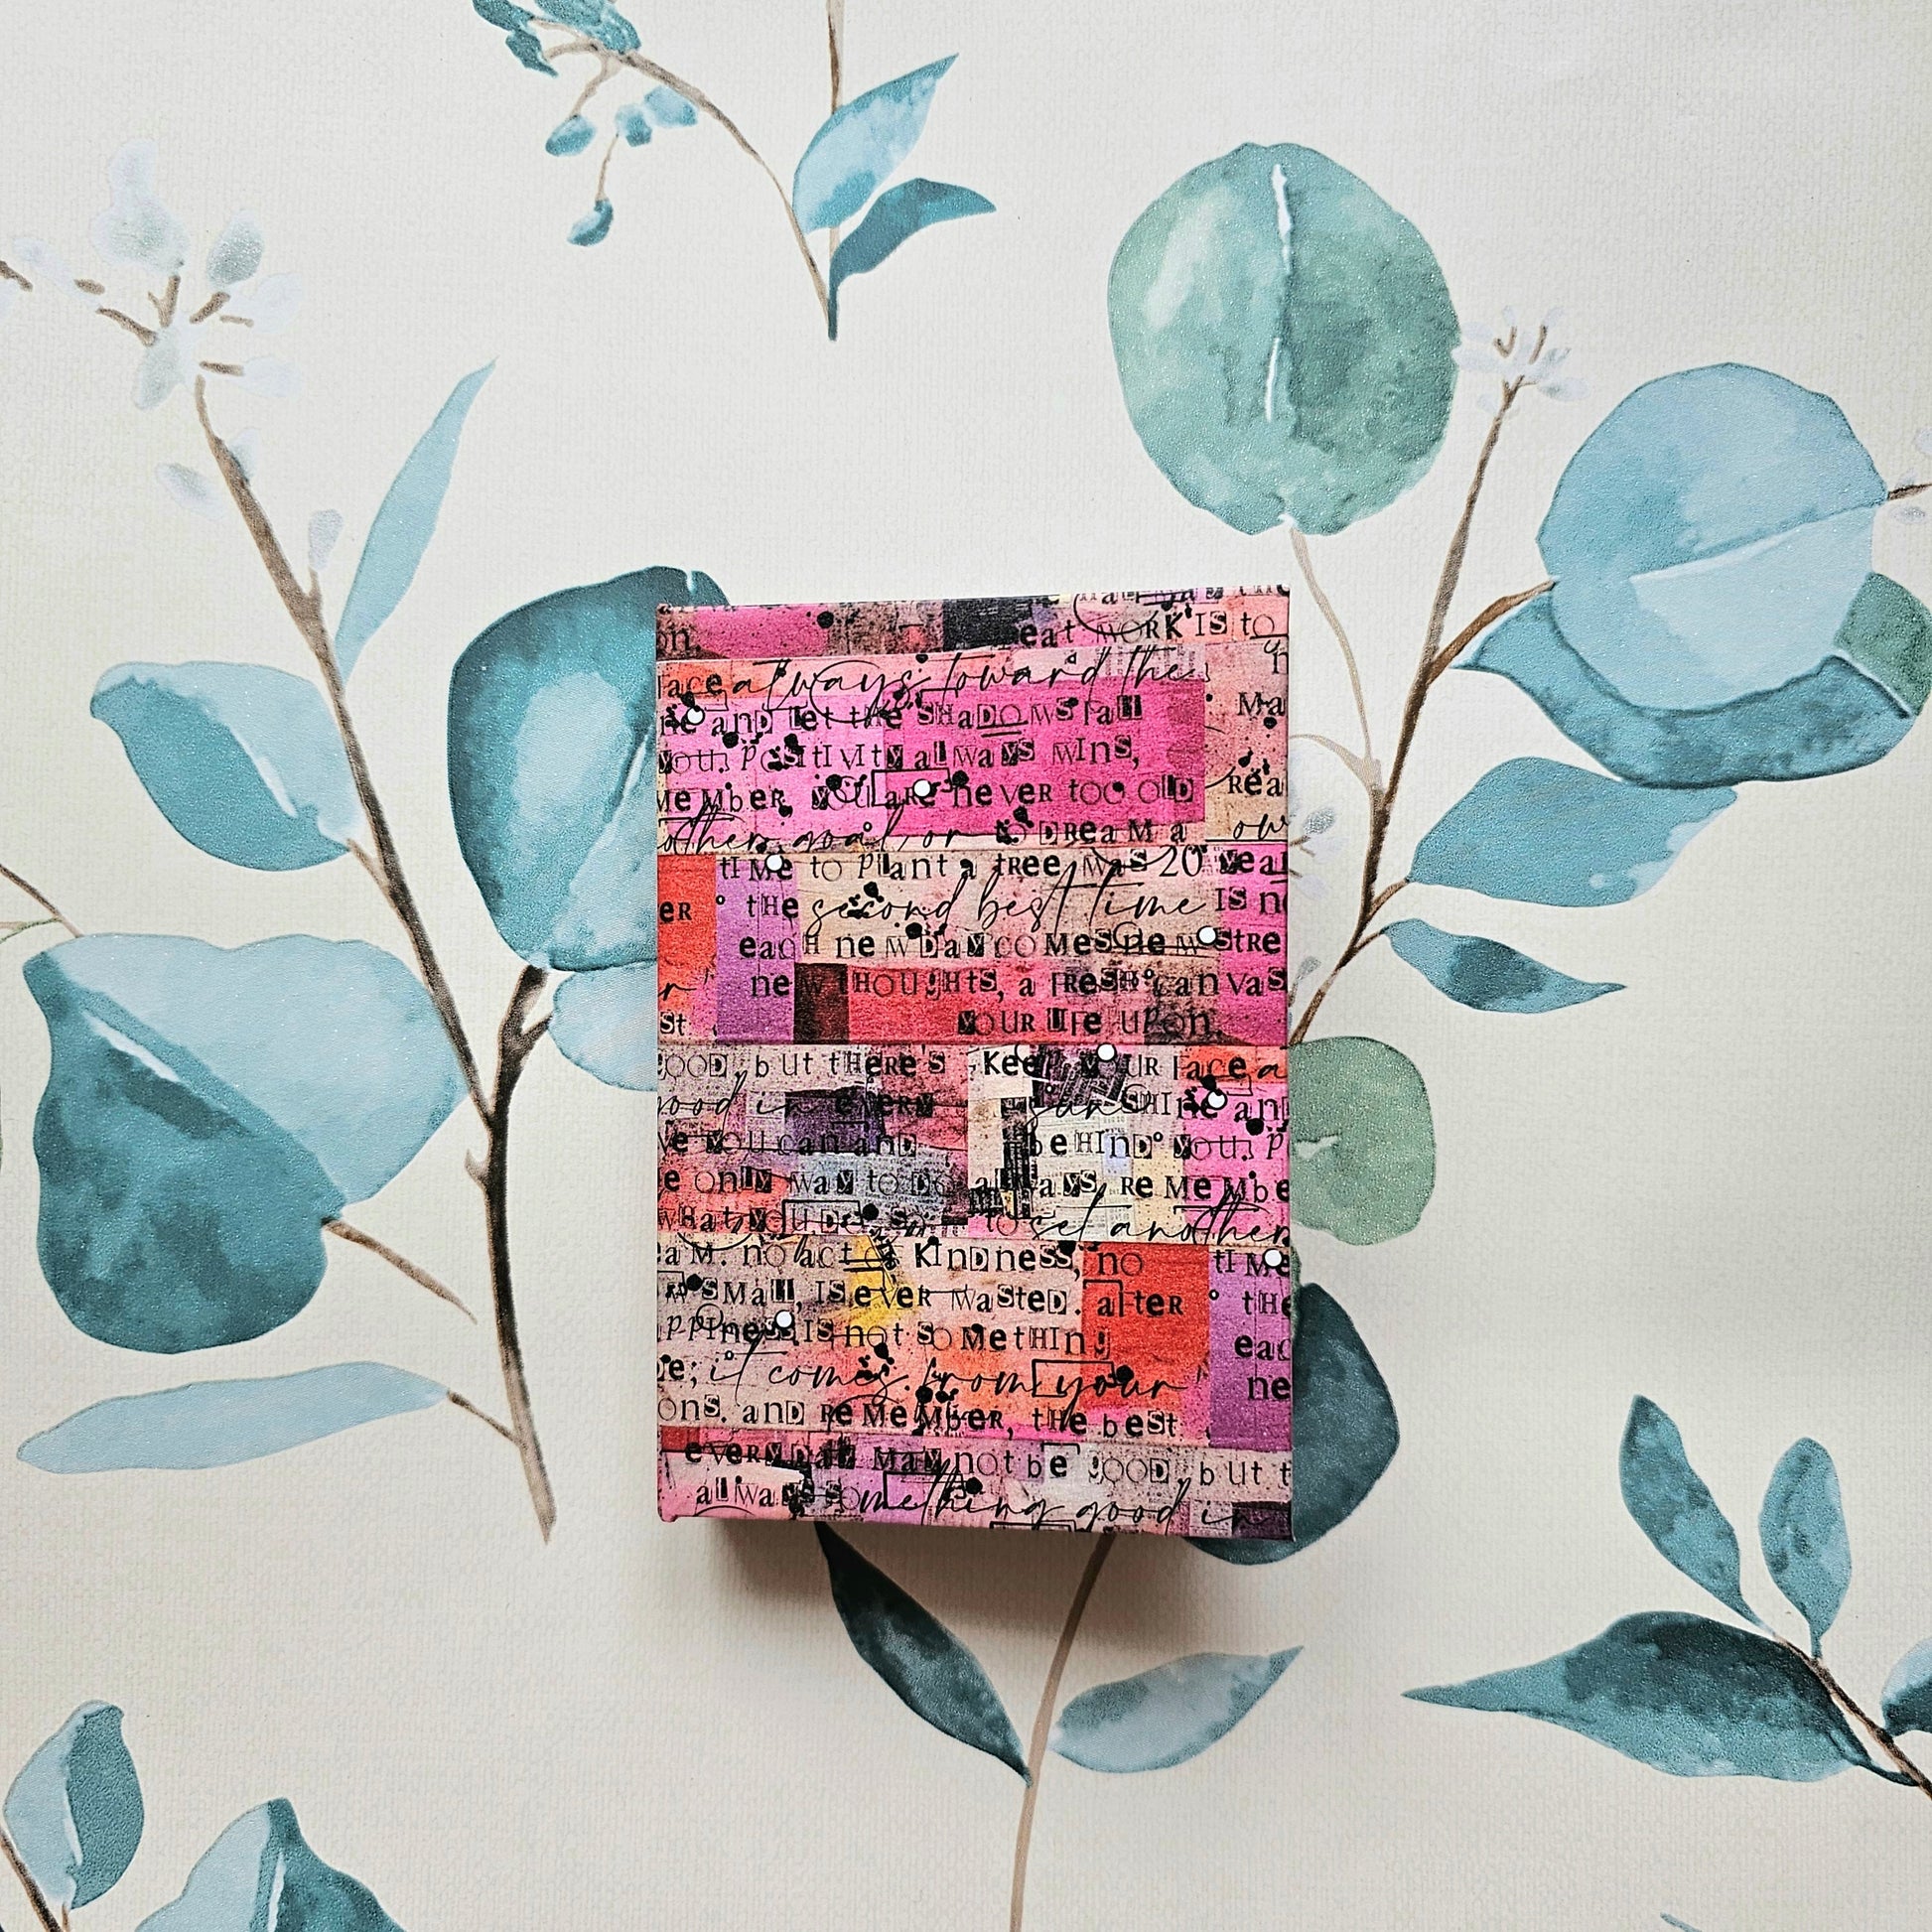 on. eat work is to
face always toward the
ne and let the shadows fall Ma
you. positivity always wins,
member, you are never too old Rea
other goal or to dream a ow
time to plant a tree was 20 year
er the second best time is no
each new day comes new stre
r new thoughts, a fresh canvas
st your life upon.
good, but there's keep your face a
good in every sunshine and
ve you can and behind you. p
e only way to do always remembe
what you do. to set another
eam. no act of kindness, no time
ow small, is ever wasted. after the
appiness is not something eac
de; it comes from your ne
ons. and remember, the best
every day may not be good, but t
always something good in